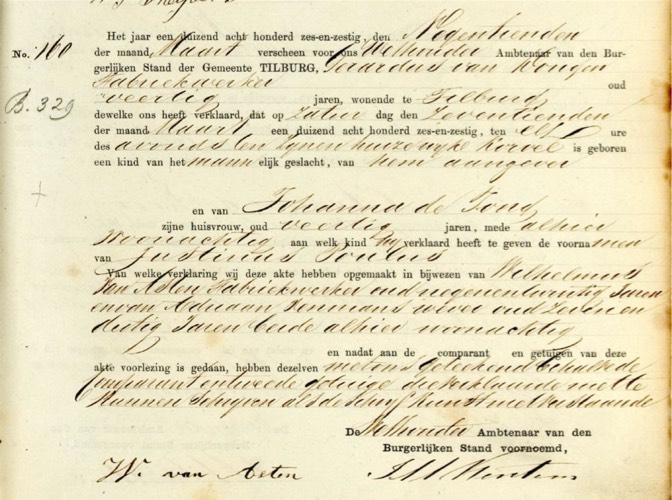 Het jaar een duizend acht honderd zes-en-zestig, den Negentienden
No. 160
der maand Maart verscheen voor ons Wethouder Ambtenaar van den Bur-
gerlijken Stand der Gemeente TILBURG, Gerardus van Dongen
Fabriekwerker oud
veertig jaren, wonende te Tilburg
B. 329
dewelke ons heeft verklaard, dat op Zatur dag den Zeventienden
der maand Maart een duizend acht honderd zes-en-zestig, ten elf ure
des avonds ten zijnen huize wijk Korvel is geboren
een kind van het mann elijk geslacht, van hem aangever
en van Johanna de Jong
zijne huisvrouw, oud veertig jaren, mede alhier
woonachtig aan welk kind hij verklaard heeft te geven de voornamen
van Justinus Paulus
Van welke verklaring wij deze akte hebben opgemaakt in bijwezen van Wilhelmus
van Asten Fabriekwerker oud negenentwintig Jaren
en van Adriaan wever oud Zeven en
dertig Jaren beide alhier woonachtig
en nadat aan de comparant en getuigen van deze
akte voorlezing is gedaan, hebben dezelven met ons geteekend behalve de
Comparant en tweede getuige die verklaarde niet te
kunnen schrijven als de schrijfkunst niet verstaande
De Wethouder Ambtenaar van den
Burgerlijken Stand voornoemd,
W. van Asten